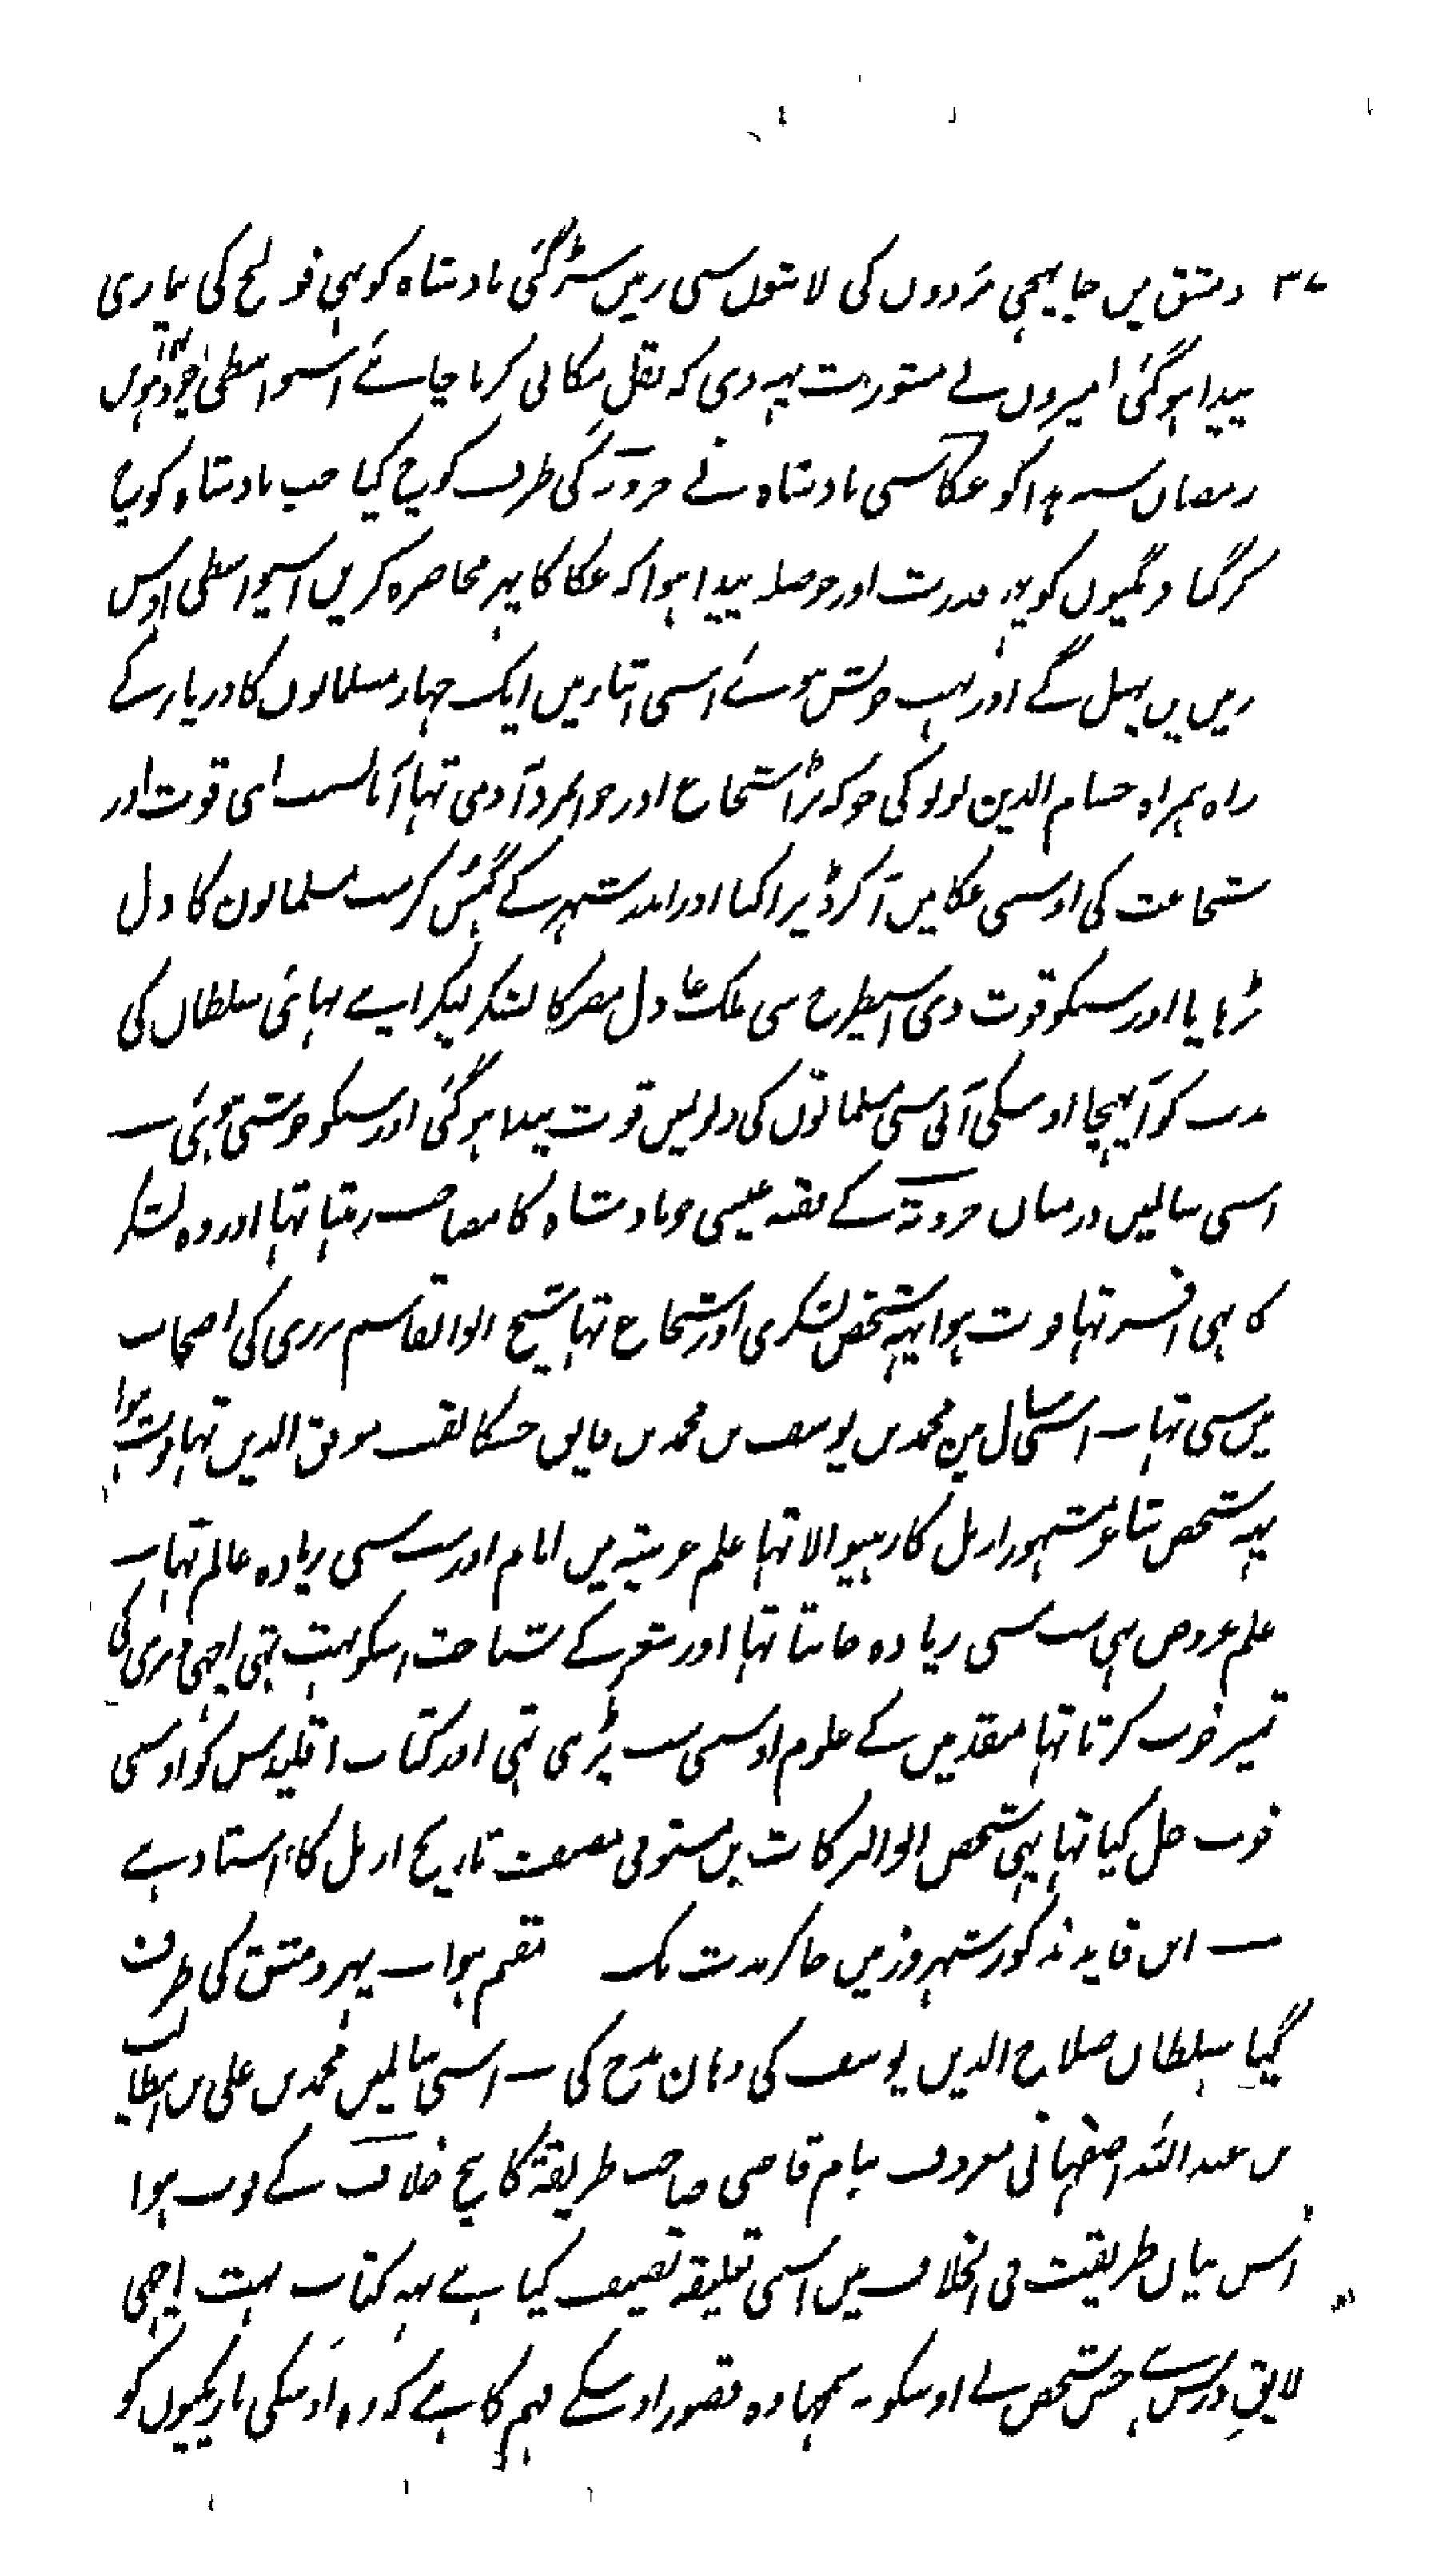 ۳۷ دمشق میں جا پہنچی مُردوں کی لاشوں سی زمیں سڑ گئی بادشاہ کو بہی قولنج کی بیماری
پیدا ہو گئی امیروں نے مشورت یہہ دی کہ نقل مکانی کرنا چاہئے اسیواسطی چودہویں
رمضان سنہ ہذا کو عکا سی بادشاہ نے خروبہ کی طرف کوچ کیا جب بادشاہ کوچ
کر گیا فرنگیوں کو پہر قدرت اور حوصلہ پیدا ہوا کہ عکا کا پہر محاصرہ کریں اسیواسطی اوس
زمیں پر پہیل گے اور بہت خوش ہوئے اسی اثناء میں ایک جہاز مسلمانوں کا دریا کے
راہ ہمراہ حسام الدین لولو کی جو کہ بڑا شجاع اور جوانمرد آدمی تہا آیا بسبب اپنی قوت اور
شجاعت کی اوسی عکا میں آ کر ڈیرا کیا اور اندر شہر کے گہس کر سب مسلمانون کا دل
بڑہایا اور سبکو قوت دی اسیطرح سی ملک عادل مصر کا لشکر لیکر اپنے بہائی سلطان کی
مدد کو آ پہنچا اوسکی آنی سی مسلمانوں کی دلوںمیں قوت پیدا ہو گئی اور سبکو خوشی ہوئی ــ
اسی سالمیں درمیان خروبہ کے فقیہ عیسی جو بادشاہ کا مصاحب رہتا تہا اور وہ لشکر
کا بہی افسر تہا فوت ہوا یہہ شخص لشکری اور شجاع تہا شیخ ابوالقاسم برزی کی اصحاب
میں سی تہا ــ اسی سال میں محمد بن یوسف بن محمد بن قاید جسکا لقب موفق الدین تہا فوت ہوا
یہہ شخص شاعر مشہور اربل کا رہنیوالا تہا علم عربیۃ میں امام اور سب سی زیادہ عالم تہا ــ
علم عروض بہی سب سی زیادہ جانتا تہا اور شعر کے شناخت اسکو بہت تہی اچہی بری کی
تمیز خوب کرتا تہا متقدمیں کے علوم اوسی سب پڑہی تہی اور کتاب اقلیدس کو اوسی
خوب حل کیا تہا یہی شخص ابوالبرکات بن مستوفی مصنف تاریخ اربل کا استاد ہے
ــ ابن قاید مذکور شہر زور میں جا کر مدت تک مقیم ہوا ــ پہر دمشق کی طرف
گیا سلطان صلاح الدین یوسف کی وہان مدح کی ــ اسی سالمیں محمد بن علی بن ابیطالب
بن عبداللہ اصفہانی معروف بنام قاضی صاحب طریقۃ کا بیچ خلاف کے فوت ہوا
اس بیان طریقت فی الخلاف میں اسی تعلیقہ تصنیف کیا ہے یہہ کتاب بہت اچہی
لایقِ درس ہے جس شخص نے اوسکو نہ سمجہا وہ قصور اوسکے فہم کا ہے کہ وہ اوسکی باریکیوں کو